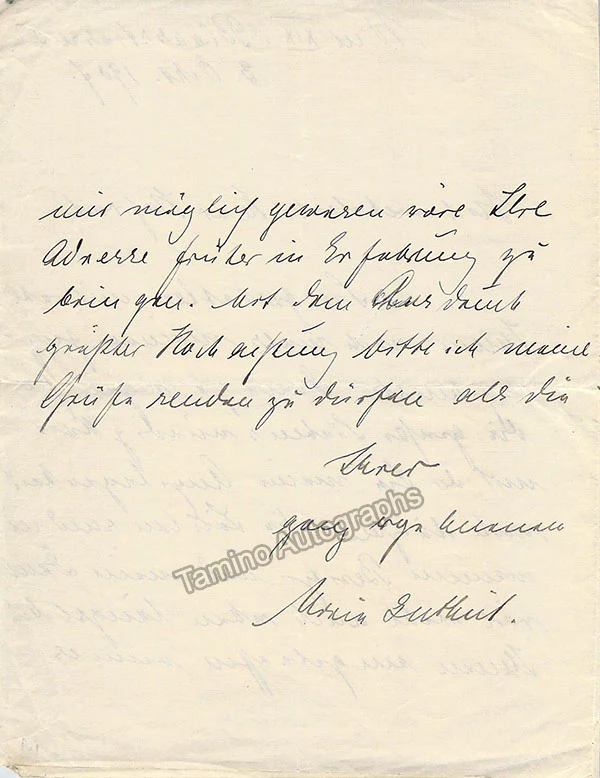 mir möglich gewesen wäre Ihre
Adresse früher in Erfahrung zu
bringen. Mit dem Ausdruck
größter Hochachtung bitte ich meine
Grüße senden zu dürfen als die
Ihrer
ganz ergebenen
Marie Gutheil.
Tamino Autographs